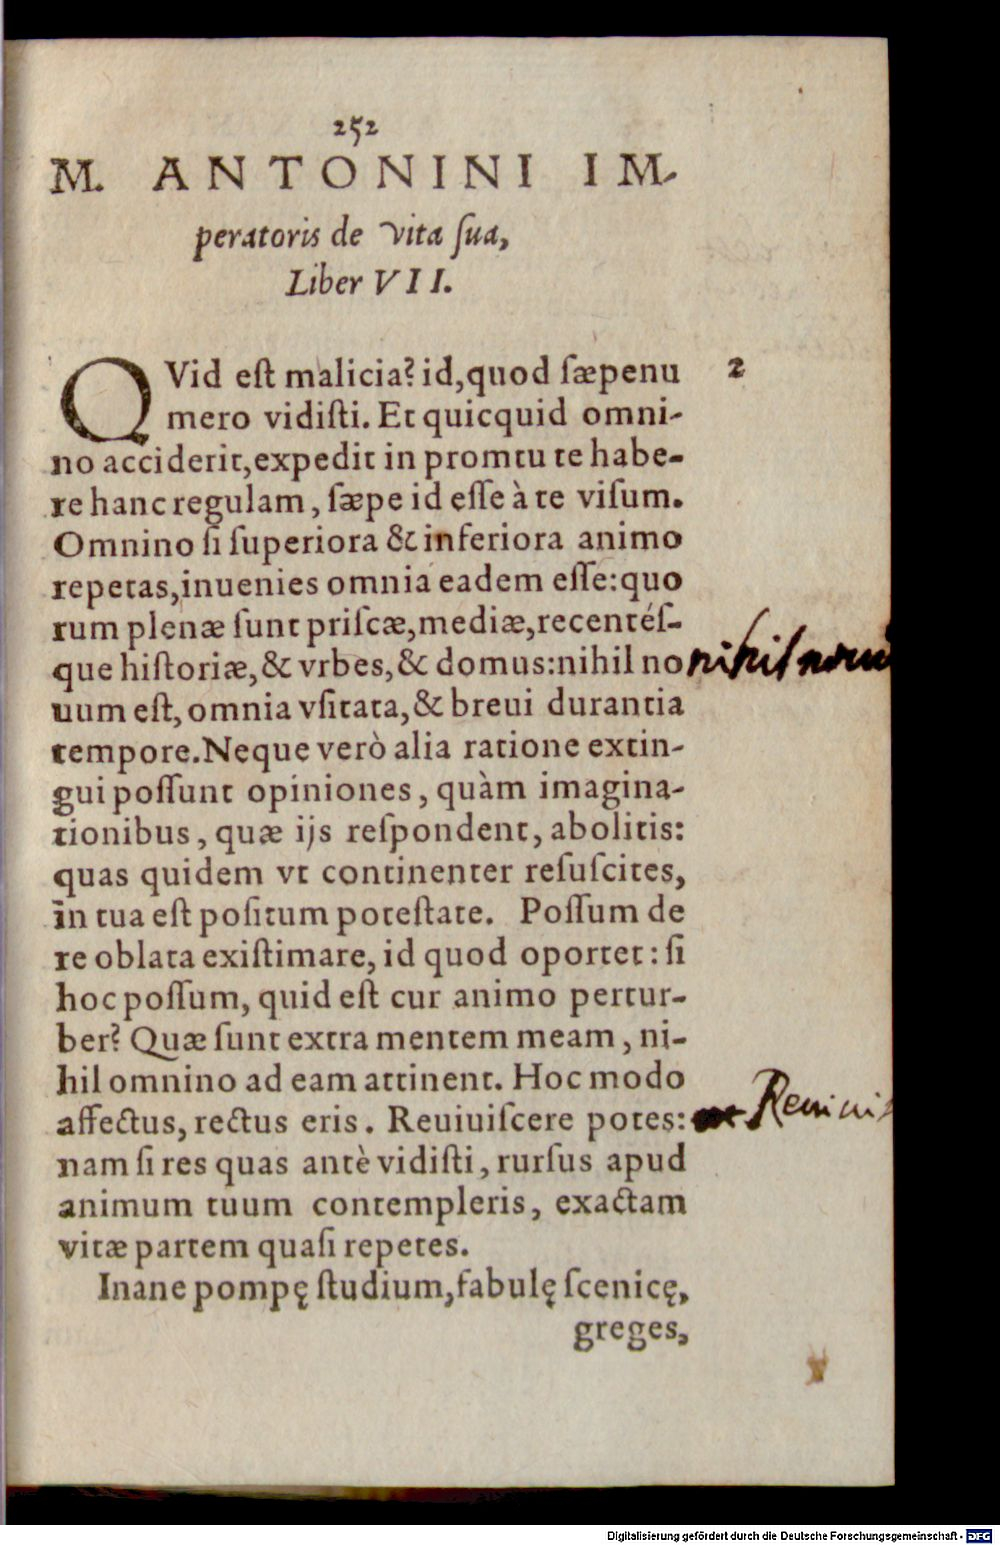 252
M. ANTONINI IM-
peratoris de vita ſua,
Liber VII.
QVid eſt malicia? id, quod ſæpenu
2
mero vidiſti. Et quicquid omni-
no acciderit, expedit in promtu te habe-
re hanc regulam, ſæpe id eſſe à te viſum.
Omnino ſi ſuperiora & inferiora animo
repetas, inuenies omnia eadem eſſe: quo
rum plenæ ſunt priſcæ, mediæ, recentéſ-
que hiſtoriæ, & vrbes, & domus: nihil no
nihil
uum eſt, omnia vſitata, & breui durantia
tempore. Neque verò alia ratione extin-
gui poſſunt opiniones, quàm imagina-
tionibus, quæ ijs reſpondent, abolitis:
quas quidem vt continenter reſuſcites,
in tua eſt poſitum poteſtate. Poſſum de
re oblata exiſtimare, id quod oportet: ſi
hoc poſſum, quid eſt cur animo pertur-
ber? Quæ ſunt extra mentem meam, ni-
hil omnino ad eam attinent. Hoc modo
affectus, rectus eris. Reuiuiſcere potes:
nam ſi res quas antè vidiſti, rurſus apud
animum tuum contempleris, exactam
vitæ partem quaſi repetes.
Inane pompę ſtudium, fabulę ſcenicę,
greges,
Digitalisierung gefördert durch die Deutsche Forschungsgemeinschaft - DFG